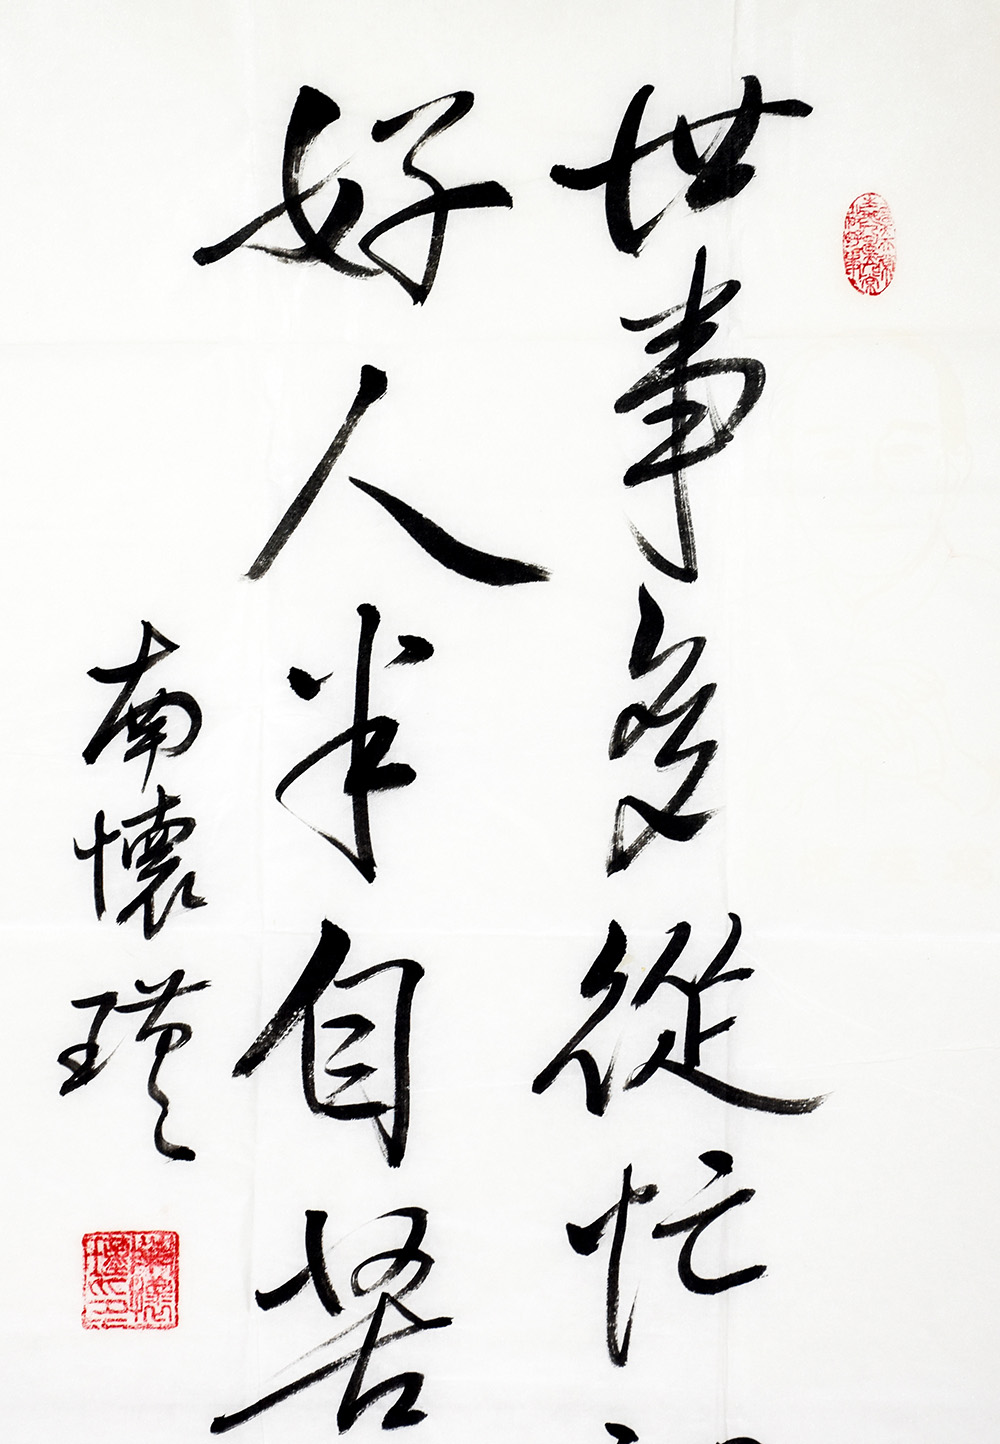 世事多從忙
好人半自苦
南懷瑾